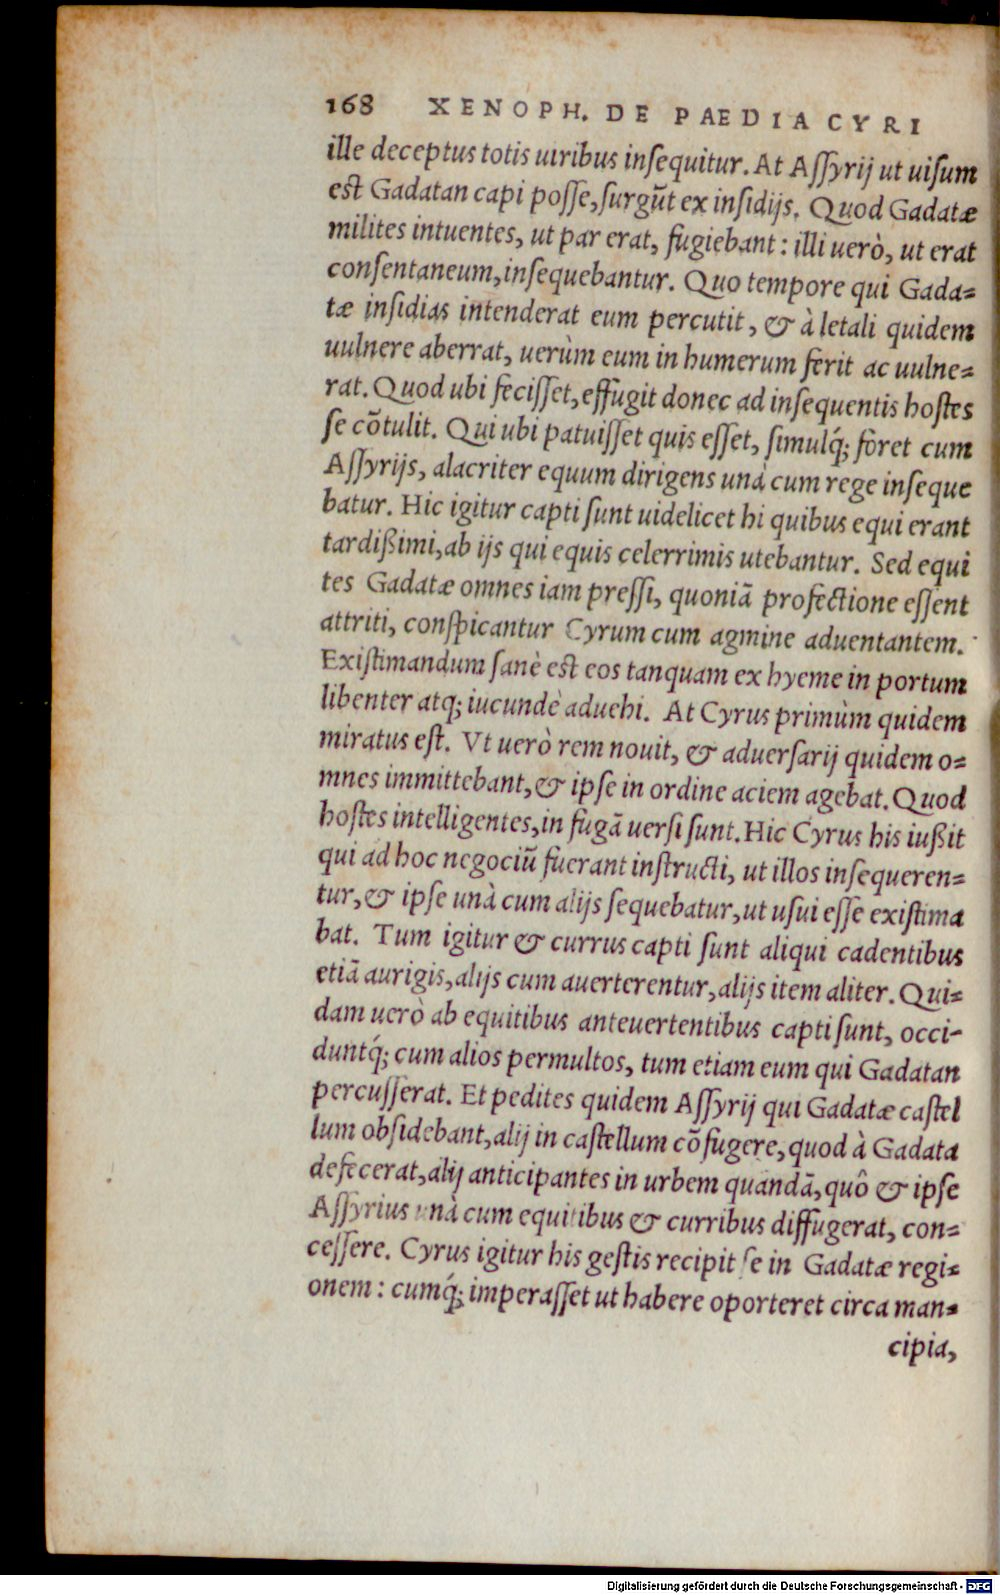 168 XENOPH. DE PAEDIA CYRI
ille deceptus totis uiribus insequitur. At Assyrij ut uisum
est Gadatan capi posse, surgūt ex insidijs. Quod Gadatæ
milites intuentes, ut par erat, fugiebant: illi uerò, ut erat
consentaneum, insequebantur. Quo tempore qui Gada=
tæ insidias intenderat eum percutit, & à letali quidem
uulnere aberrat, uerùm eum in humerum ferit ac uulne=
rat. Quod ubi fecisset, effugit donec ad insequentis hostes
se cōtulit. Qui ubi patuisset quis esset, simulq́; foret cum
Assyrijs, alacriter equum dirigens unà cum rege inseque
batur. Hic igitur capti sunt uidelicet hi quibus equi erant
tardißimi, ab ijs qui equis celerrimis utebantur. Sed equi
tes Gadatæ omnes iam pressi, quoniā profectione essent
attriti, conspicantur Cyrum cum agmine aduentantem.
Existimandum sanè est eos tanquam ex hyeme in portum
libenter atq; iucundè aduehi. At Cyrus primùm quidem
miratus est. Vt uerò rem nouit, & aduersarij quidem o=
mnes immittebant, & ipse in ordine aciem agebat. Quod
hostes intelligentes, in fugā uersi sunt. Hic Cyrus his iußit
qui ad hoc negociū fuerant instructi, ut illos insequeren=
tur, & ipse unà cum alijs sequebatur, ut usui esse existima
bat. Tum igitur & currus capti sunt aliqui cadentibus
etiā aurigis, alijs cum auerterentur, alijs item aliter. Qui=
dam uerò ab equitibus anteuertentibus capti sunt, occi-
duntq́; cum alios permultos, tum etiam eum qui Gadatan
percusserat. Et pedites quidem Assyrij qui Gadatæ castel
lum obsidebant, alij in castellum cōfugere, quod à Gadata
defecerat, alij anticipantes in urbem quandā, quô & ipse
Assyrius unà cum equitibus & curribus diffugerat, con=
cessere. Cyrus igitur his gestis recipit se in Gadatæ regi=
onem: cumq́; imperasset ut habere oporteret circa man=
cipia,
Digitalisierung gefördert durch die Deutsche Forschungsgemeinschaft - DFG